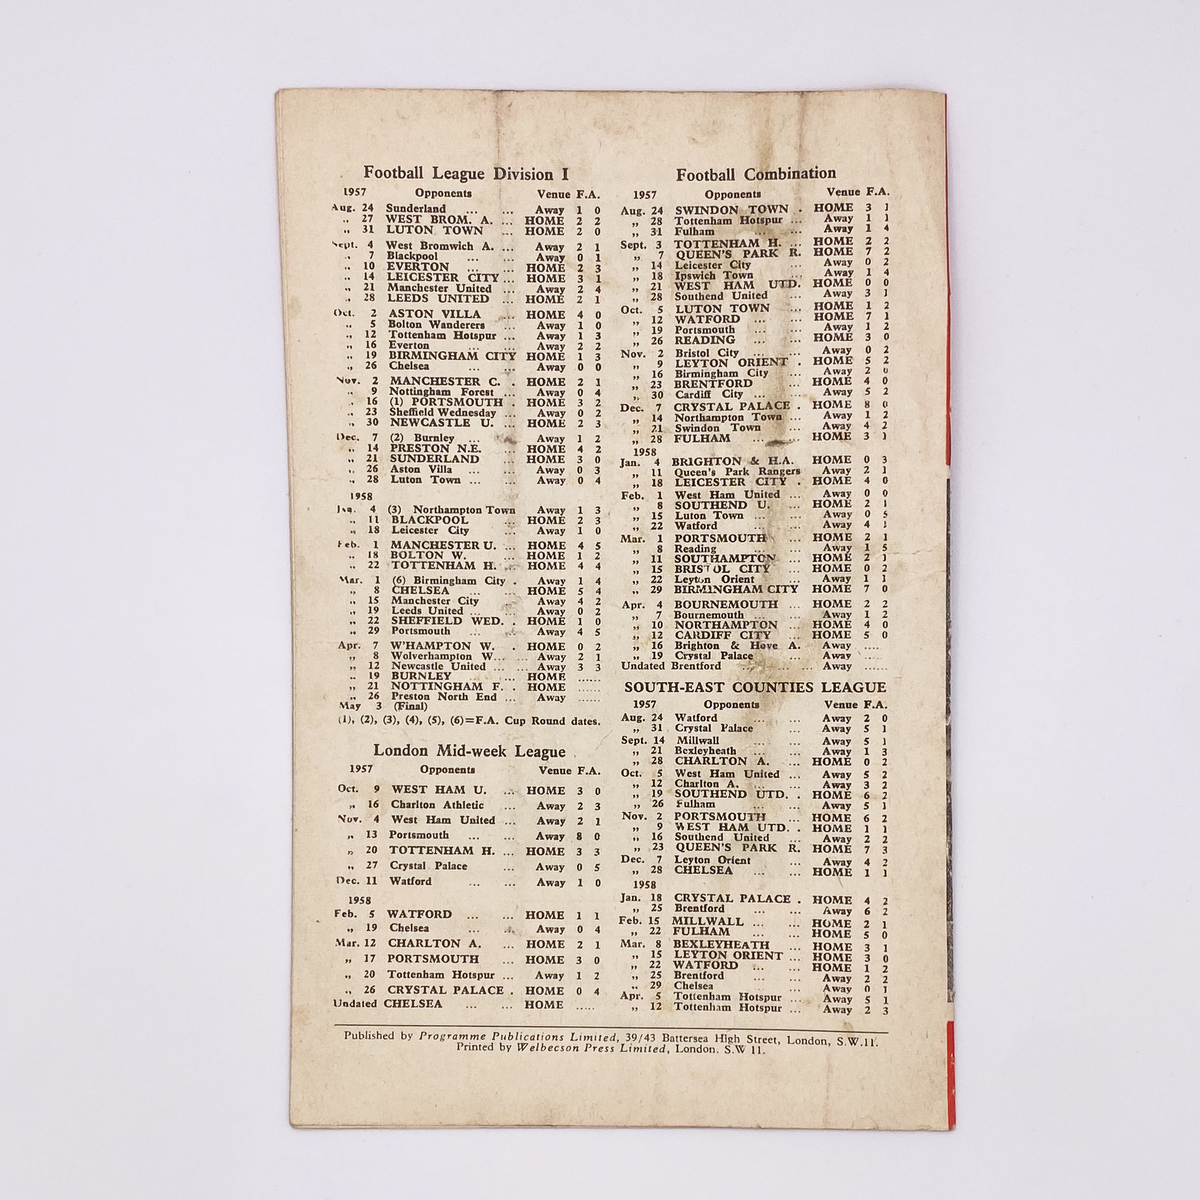 Football League Division I
1957 Opponents Venue F.A.
Aug. 24 Sunderland ... ... Away 1 0
„ 27 WEST BROM. A. ... HOME 2 2
„ 31 LUTON TOWN ... HOME 2 0
Sept. 4 West Bromwich A. ... Away 2 1
„ 7 Blackpool ... ... Away 0 1
„ 10 EVERTON ... ... HOME 2 3
„ 14 LEICESTER CITY ... HOME 3 1
„ 21 Manchester United ... Away 2 4
„ 28 LEEDS UNITED ... HOME 2 1
Oct. 2 ASTON VILLA ... HOME 4 0
„ 5 Bolton Wanderers ... Away 1 0
„ 12 Tottenham Hotspur ... Away 1 3
„ 16 Everton ... ... Away 2 2
„ 19 BIRMINGHAM CITY HOME 1 3
„ 26 Chelsea ... ... Away 0 0
Nov. 2 MANCHESTER C. . HOME 2 1
„ 9 Nottingham Forest ... Away 0 4
„ 16 (1) PORTSMOUTH . HOME 3 2
„ 23 Sheffield Wednesday ... Away 0 2
„ 30 NEWCASTLE U. ... HOME 2 3
Dec. 7 (2) Burnley ... ... Away 1 2
„ 14 PRESTON N.E. ... HOME 4 2
„ 21 SUNDERLAND ... HOME 3 0
„ 26 Aston Villa ... ... Away 0 3
„ 28 Luton Town ... ... Away 0 4
1958
Jan. 4 (3) Northampton Town Away 1 3
„ 11 BLACKPOOL ... HOME 2 3
„ 18 Leicester City ... Away 1 0
Feb. 1 MANCHESTER U. ... HOME 4 5
„ 18 BOLTON W. ... HOME 1 2
„ 22 TOTTENHAM H. ... HOME 4 4
Mar. 1 (6) Birmingham City . Away 1 4
„ 8 CHELSEA ... ... HOME 5 4
„ 15 Manchester City ... Away 4 2
„ 19 Leeds United ... ... Away 0 2
„ 22 SHEFFIELD WED. . HOME 1 0
„ 29 Portsmouth ... ... Away 4 5
Apr. 7 W'HAMPTON W. . HOME 0 2
„ 8 Wolverhampton W... ... Away 2 1
„ 12 Newcastle United ... ... Away 3 3
„ 19 BURNLEY ... ... HOME ......
„ 21 NOTTINGHAM F. . HOME ......
„ 26 Preston North End ... Away ......
May 3 (Final)
(1), (2), (3), (4), (5), (6)=F.A. Cup Round dates.
London Mid-week League
1957 Opponents Venue F.A.
Oct. 9 WEST HAM U. ... HOME 3 0
„ 16 Charlton Athletic ... Away 2 3
Nov. 4 West Ham United ... Away 2 1
„ 13 Portsmouth ... ... Away 8 0
„ 20 TOTTENHAM H. ... HOME 3 3
„ 27 Crystal Palace ... Away 0 5
Dec. 11 Watford ... ... Away 1 0
1958
Feb. 5 WATFORD ... ... HOME 1 1
„ 19 Chelsea ... ... Away 0 4
Mar. 12 CHARLTON A. ... HOME 2 1
„ 17 PORTSMOUTH ... HOME 3 0
„ 20 Tottenham Hotspur ... Away 1 2
„ 26 CRYSTAL PALACE . HOME 0 4
Undated CHELSEA ... ... HOME ......
Football Combination
1957 Opponents Venue F.A.
Aug. 24 SWINDON TOWN . HOME 3 1
„ 28 Tottenham Hotspur ... Away 1 1
„ 31 Fulham ... ... Away 1 4
Sept. 3 TOTTENHAM H. ... HOME 2 2
„ 7 QUEEN'S PARK R. HOME 7 2
„ 14 Leicester City ... Away 0 2
„ 18 Ipswich Town ... Away 1 4
„ 21 WEST HAM UTD. HOME 0 0
„ 28 Southend United ... Away 3 1
Oct. 5 LUTON TOWN ... HOME 1 2
„ 12 WATFORD ... ... HOME 7 1
„ 19 Portsmouth ... ... Away 1 2
„ 26 READING ... ... HOME 3 0
Nov. 2 Bristol City ... ... Away 0 2
„ 9 LEYTON ORIENT . HOME 5 2
„ 16 Birmingham City ... Away 2 0
„ 23 BRENTFORD ... HOME 4 0
„ 30 Cardiff City ... ... Away 5 2
Dec. 7 CRYSTAL PALACE . HOME 8 0
„ 14 Northampton Town . Away 1 2
„ 21 Swindon Town ... Away 4 2
„ 28 FULHAM ... ... HOME 3 1
1958
Jan. 4 BRIGHTON & H.A. HOME 0 3
„ 11 Queen's Park Rangers Away 2 1
„ 18 LEICESTER CITY . HOME 4 0
Feb. 1 West Ham United ... Away 0 0
„ 8 SOUTHEND U. ... HOME 2 1
„ 15 Luton Town ... ... Away 0 5
„ 22 Watford ... ... Away 4 1
Mar. 1 PORTSMOUTH ... HOME 2 1
„ 8 Reading ... ... Away 1 5
„ 11 SOUTHAMPTON ... HOME 2 1
„ 15 BRISTOL CITY ... HOME 0 2
„ 22 Leyton Orient ... Away 1 1
„ 29 BIRMINGHAM CITY HOME 7 0
Apr. 4 BOURNEMOUTH ... HOME 2 2
„ 7 Bournemouth ... ... Away 1 2
„ 10 NORTHAMPTON ... HOME 4 0
„ 12 CARDIFF CITY ... HOME 5 0
„ 16 Brighton & Hove A. Away ......
„ 19 Crystal Palace ... Away ......
Undated Brentford ... ... Away ......
SOUTH-EAST COUNTIES LEAGUE
1957 Opponents Venue F.A.
Aug. 24 Watford ... ... Away 2 0
„ 31 Crystal Palace ... Away 5 1
Sept. 14 Millwall ... ... Away 5 1
„ 21 Bexleyheath ... Away 1 3
„ 28 CHARLTON A. ... HOME 0 2
Oct. 5 West Ham United ... Away 5 2
„ 12 Charlton A. ... ... Away 3 2
„ 19 SOUTHEND UTD. . HOME 6 2
„ 26 Fulham ... ... Away 5 1
Nov. 2 PORTSMOUTH ... HOME 6 2
„ 9 WEST HAM UTD. . HOME 1 1
„ 16 Southend United ... Away 2 2
„ 23 QUEEN'S PARK R. HOME 7 3
Dec. 7 Leyton Orient ... Away 4 2
„ 28 CHELSEA ... ... HOME 1 1
1958
Jan. 18 CRYSTAL PALACE . HOME 4 2
„ 25 Brentford ... ... Away 6 2
Feb. 15 MILLWALL ... ... HOME 2 1
„ 22 FULHAM ... ... HOME 5 0
Mar. 8 BEXLEYHEATH ... HOME 3 1
„ 15 LEYTON ORIENT ... HOME 3 0
„ 22 WATFORD ... ... HOME 1 2
„ 25 Brentford ... ... Away 2 2
„ 29 Chelsea ... ... Away 0 1
Apr. 5 Tottenham Hotspur ... Away 5 1
„ 12 Tottenham Hotspur ... Away 2 3
Published by Programme Publications Limited, 39/43 Battersea High Street, London, S.W.11.
Printed by Welbecson Press Limited, London. S.W 11.